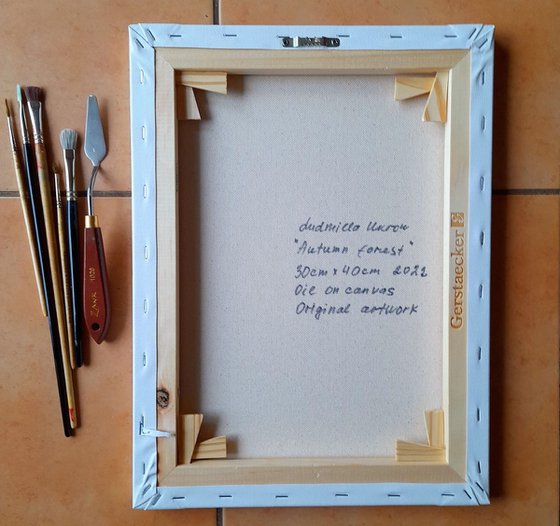 Ludmilla Ukrow
"Autumn forest"
30cm x 40cm 2022
Oil on canvas
Original artwork
Gerstaecker